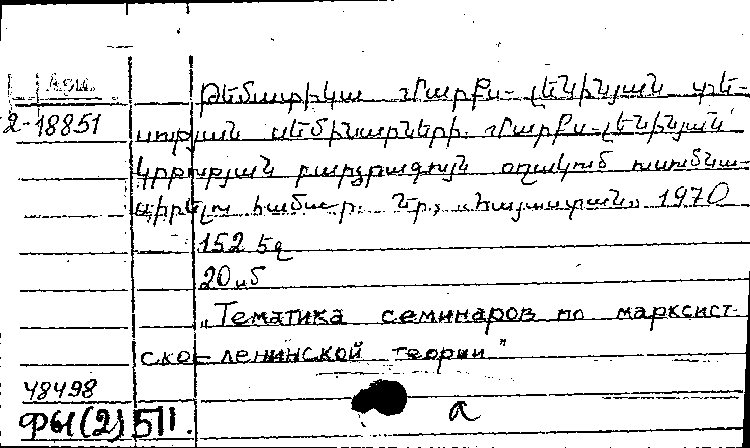 Արմ.
Թեմատիկա Մարքս-լենինյան տե-
2-18851
սության սեմինարների. Մարքս-լենինյան
կրթության բարձրագույն օղակում ուսումնա-
սիրելու համար. Եր., «Հայաստան» 1970
152 էջ
20 կ
„Тематика семинаров по марксист-
ско-ленинской теории"
48498
a
ФЫ(2)511.